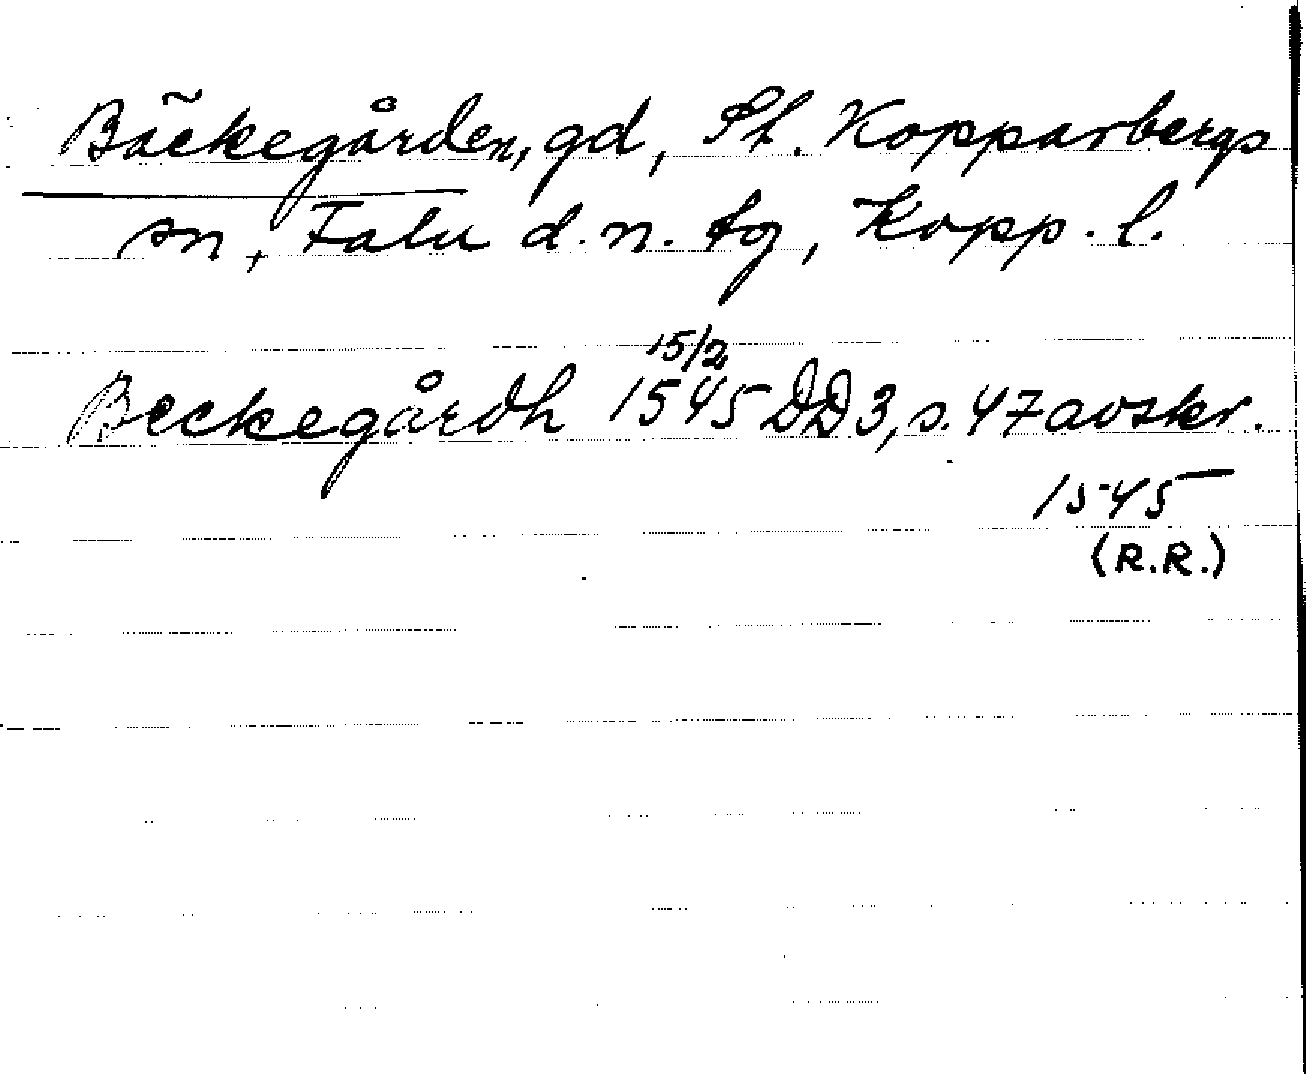 Bäckegården, gd, St. Kopparbergs
sn, Falu d.n. tg, Kopp. l.
15/2
Beckegårdh 1545 DD3, s. 47 avskr.
1545
(R.R.)